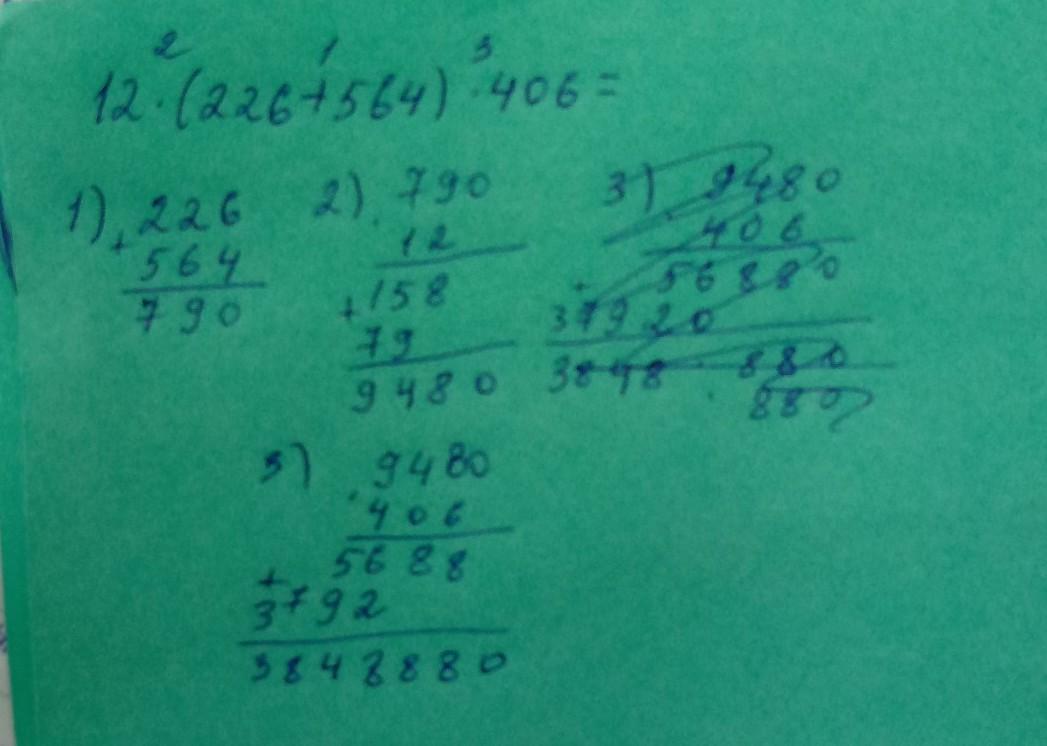 2 1 3
12·(226+564)·406=
1) 226
+
564
790
2) 790
·
12
+158
79
9480
3) 9480
406
+
56880
37920
3848 880
880
3) 9480
·
406
5688
+
3792
3848880